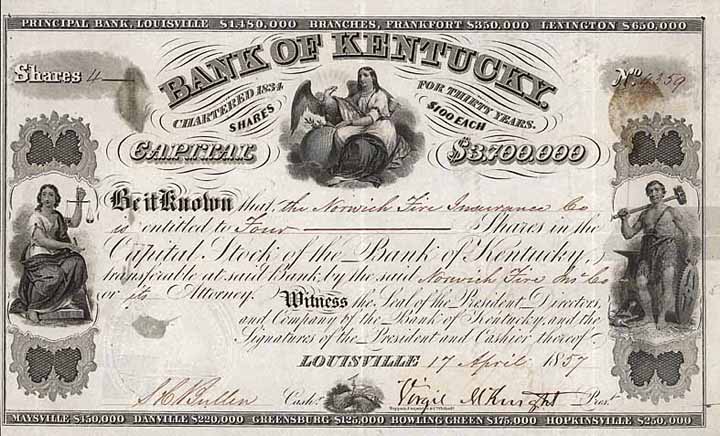 PRINCIPAL BANK, LOUISVILLE $1,480,000 BRANCHES, FRANKFORT $350,000 LEXINGTON $650,000
BANK OF KENTUCKY.
Shares 4
No.
CHARTERED 1834 FOR THIRTY YEARS.
SHARES $100 EACH
CAPITAL $3,700,000
Be it Known that the Norwich Fire Insurance Co
is entitled to Four Shares in the
Capital Stock of the Bank of Kentucky,
transferable at said Bank by the said Norwich Fire Ins Co
or its Attorney. Witness the Seal of the President Directors,
and Company of the Bank of Kentucky, and the
Signatures of the President and Cashier thereof
LOUISVILLE 17 April 1857
Cash. Virgil McKnight Prest.
MAYSVILLE $450,000 DANVILLE $220,000 GREENSBURG $125,000 BOWLING GREEN $175,000 HOPKINSVILLE $250,000